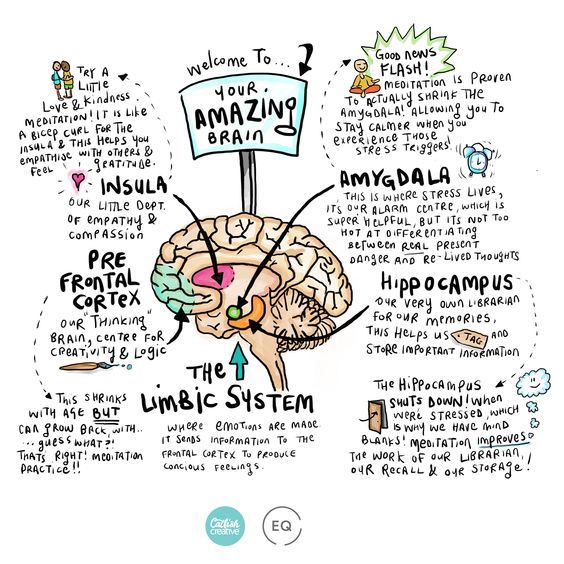 welcome To...
YOUR
AMAZING
BRAIN
TRY A
LITTLE
LOVE & KINDNESS
MEDITATION! IT IS LIKE
A BICEP CURL FOR THE
INSULA & THIS HELPS YOU
EMPATHISE WITH OTHERS &
FEEL GRATITUDE.
INSULA
OUR LITTLE DEPT.
OF EMPATHY &
COMPASSION
PRE
FRONTAL
CORTEX
OUR "THINKING"
BRAIN, CENTRE FOR
CREATIVITY & LOGIC
THIS SHRINKS
WITH AGE BUT
CAN GROW BACK, WITH..
...GUESS WHAT?!
THATS RIGHT! MEDITATION
PRACTICE!!
THE
LIMBIC SYSTEM
WHERE EMOTIONS ARE MADE.
IT SENDS INFORMATION TO THE
FRONTAL CORTEX TO PRODUCE
CONCIOUS FEELINGS.
GOOD NEWS
FLASH!
MEDITATION IS PROVEN
TO ACTUALLY SHRINK THE
AMYGDALA! ALLOWING YOU TO
STAY CALMER WHEN YOU
EXPERIENCE THOSE
STRESS TRIGGERS!
AMYGDALA
THIS IS WHERE STRESS LIVES,
IT'S OUR ALARM CENTRE, WHICH IS
SUPER HELPFUL, BUT IT'S NOT TOO
HOT AT DIFFERENTIATING
BETWEEN REAL PRESENT
DANGER AND RE-LIVED THOUGHTS
HIPPOCAMPUS
OUR VERY OWN LIBRARIAN
FOR OUR MEMORIES,
THIS HELPS US TAG AND
STORE IMPORTANT INFORMATION
THE HIPPOCAMPUS
SHUTS DOWN! WHEN
WERE STRESSED, WHICH
IS WHY WE HAVE MIND
BLANKS! MEDITATION IMPROVES
THE WORK OF OUR LIBRARIAN,
OUR RECALL & OUR STORAGE!
Catfish
creative
EQ